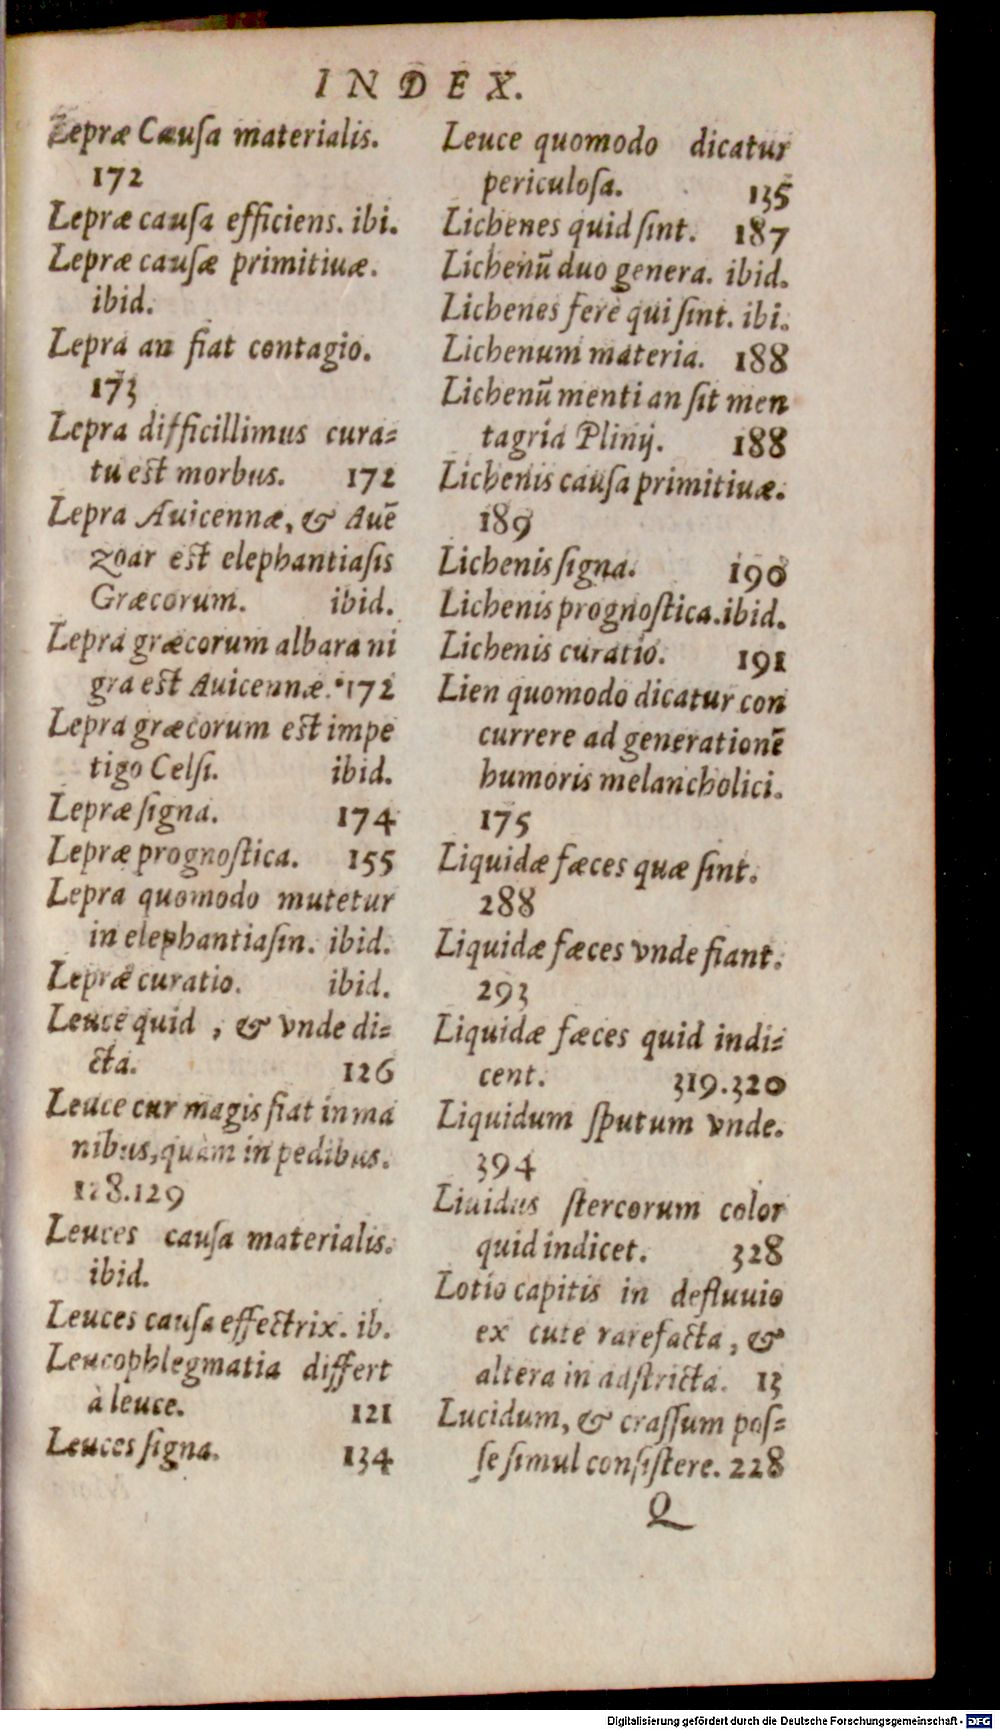 INDEX.
Lepræ Causa materialis.
172
Lepræ causa efficiens. ibi.
Lepræ causæ primitiuæ.
ibid.
Lepra an fiat contagio.
173
Lepra difficillimus cura=
tu est morbus. 172
Lepra Auicennæ, & Auē
zoar est elephantiasis
Græcorum. ibid.
Lepra græcorum albara ni
gra est Auicennæ. 172
Lepra græcorum est impe
tigo Celsi. ibid.
Lepræ signa. 174
Lepræ prognostica. 155
Lepra quomodo mutetur
in elephantiasin. ibid.
Lepræ curatio. ibid.
Leuce quid, & vnde di=
cta. 126
Leuce cur magis fiat in ma
nibus, quàm in pedibus.
128.129
Leuces causa materialis.
ibid.
Leuces causa effectrix. ib.
Leucophlegmatia differt
à leuce. 121
Leuces signa. 134
Leuce quomodo dicatur
periculosa. 135
Lichenes quid sint. 187
Lichenū duo genera. ibid.
Lichenes ferè qui sint. ibi.
Lichenum materia. 188
Lichenū menti an sit men
tagria Plinij. 188
Lichenis causa primitiuæ.
189
Lichenis signa. 190
Lichenis prognostica. ibid.
Lichenis curatio. 191
Lien quomodo dicatur con
currere ad generationē
humoris melancholici.
175
Liquidæ fæces quæ sint.
288
Liquidæ fæces vnde fiant.
293
Liquidæ fæces quid indi=
cent. 319.320
Liquidum sputum vnde.
394
Liuidus stercorum color
quid indicet. 328
Lotio capitis in defluuio
ex cute rarefacta, &
altera in adstricta. 13
Lucidum, & crassum pos=
se simul consistere. 228
Q
Digitalisierung gefördert durch die Deutsche Forschungsgemeinschaft - DFG